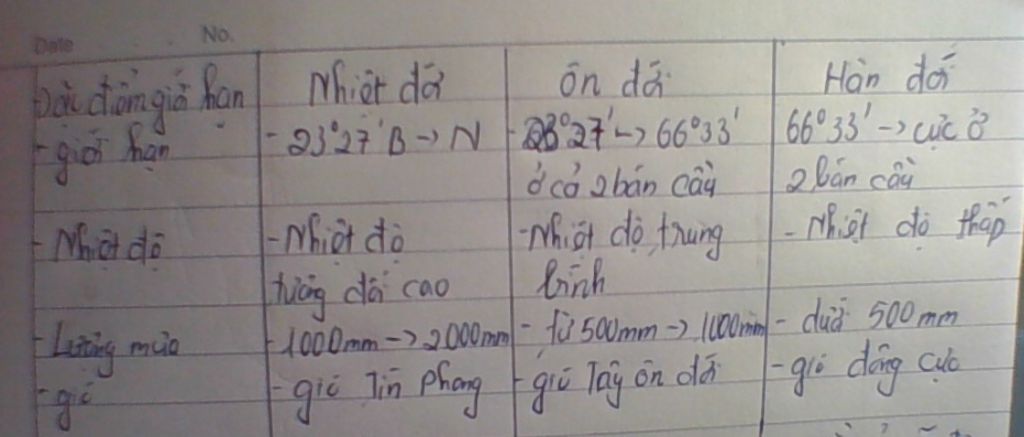 Date No.
Đặc điểm giới hạn Nhiệt đới ôn đới Hàn đới
- giới hạn - 23°27' B -> N - 23°27' -> 66°33' 66°33' -> cực ở
ở cả 2 bán cầu 2 bán cầu
- Nhiệt độ - Nhiệt độ - Nhiệt độ trung - Nhiệt độ thấp
tương đối cao bình
- Lượng mưa - 1000mm -> 2000mm - từ 500mm -> 1000mm - dưới 500mm
- gió - gió Tín phong - gió Tây ôn đới - gió đông cực